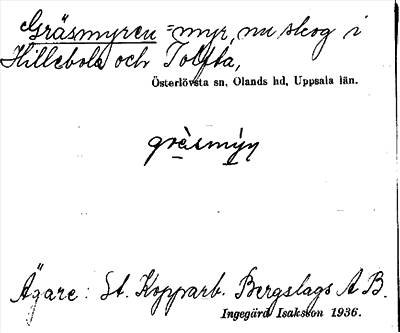 Gräsmyren =myr, nu skog i
Hillebola och Tolfta,
Österlövsta sn, Olands hd, Uppsala län.
gräsmýṛn
Ägare: St. Kopparb. Bergslags A B.
Ingegärd Isaksson 1936.